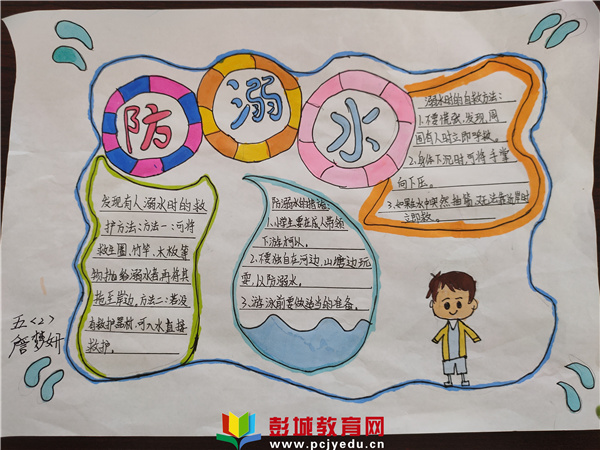 防溺水
溺水时的自救方法:
1.不要慌张,发现周
围有人时立即呼救。
2.身体下沉时,可将手掌
向下压。
3.如果在水中突然抽筋,
立即救。
发现有人溺水时的救
护方法:方法一:可将
救生圈、竹竿、木板等
物抛给溺水者,再将其
拖至岸边,方法二:若没
有救护器材,可入水直接
救护。
防溺水的措施:
1.小学生要在成人带领
下游
2.不要独自在河边、山塘边玩
耍,以防溺水。
3.游泳前要做适当的准备。
五<2>
詹梦妍
彭城教育网
www.pcjyedu.cn